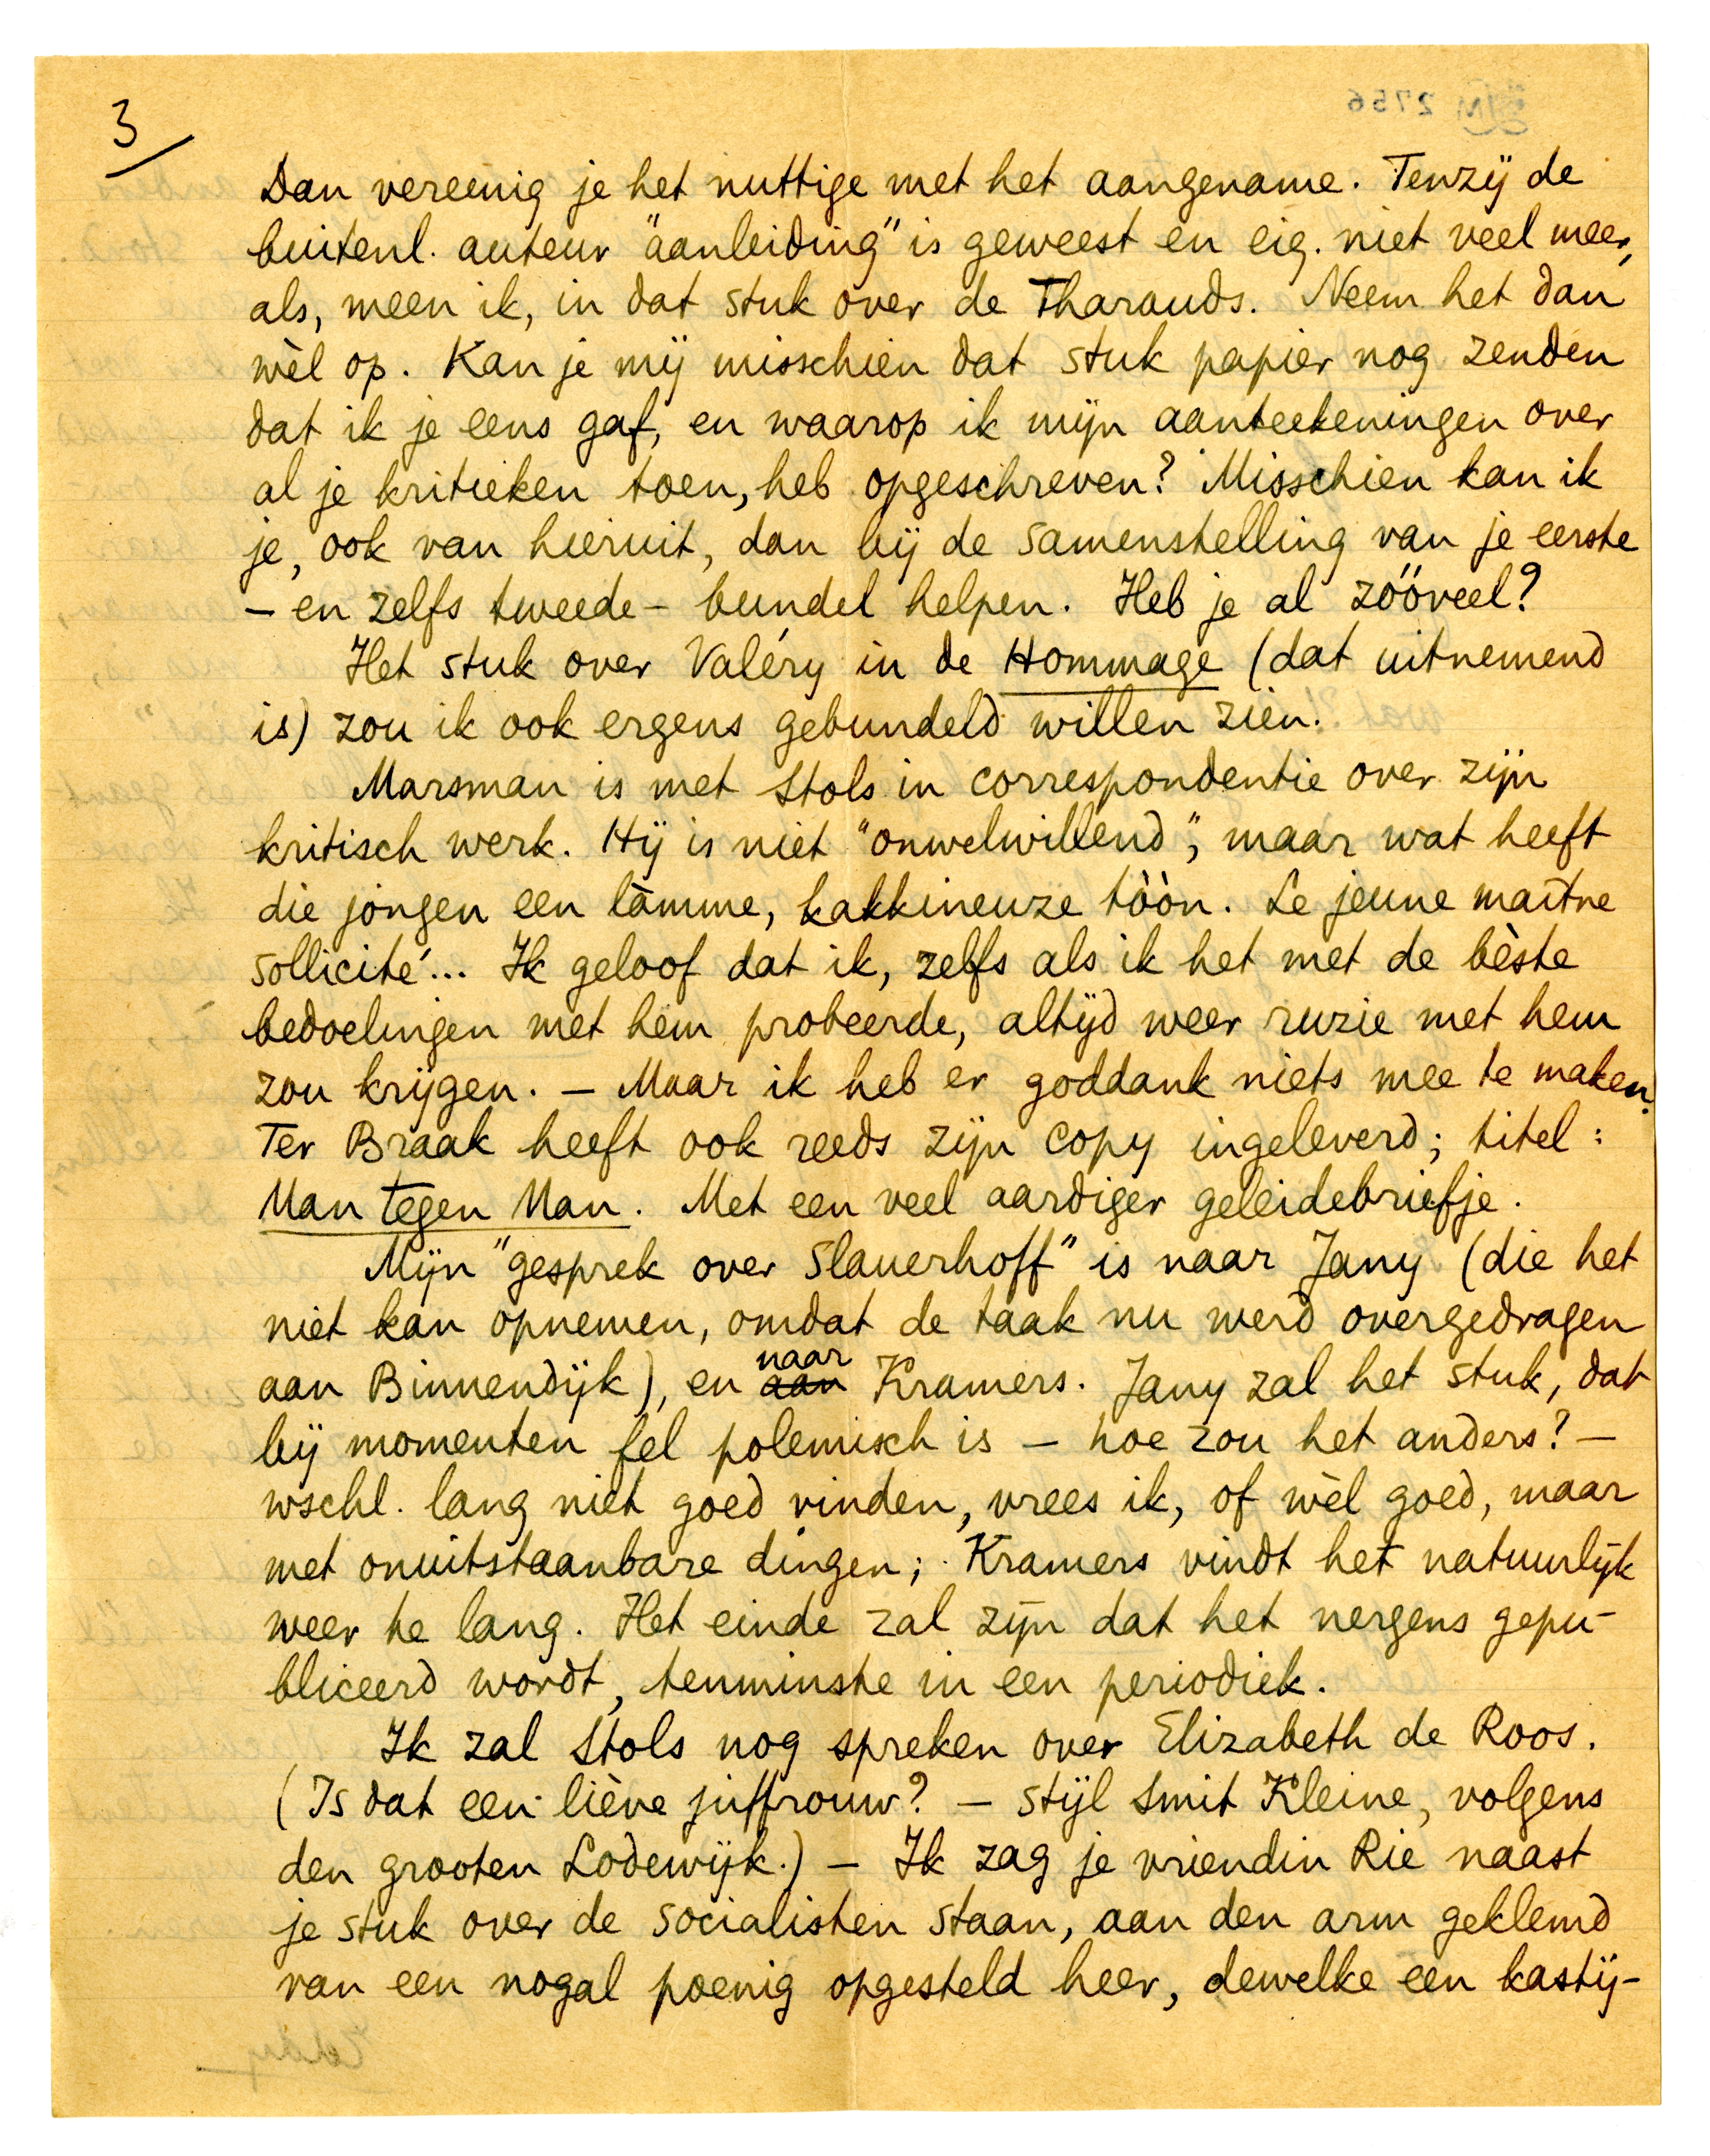 3
Dan vereenig je het nuttige met het aangename. Tenzij de
buitenl. auteur "aanleiding" is geweest en eig. niet veel meer,
als, meen ik, in dat stuk over de Tharauds. Neem het dan
wèl op. Kan je mij misschien dat stuk papier nog zenden
dat ik je eens gaf, en waarop ik mijn aanteekeningen over
al je kritieken toen, heb opgeschreven? Misschien kan ik
je, ook van hieruit, dan bij de samenstelling van je eerste
– en zelfs tweede – bundel helpen. Heb je al zóóveel?
Het stuk over Valéry in de Hommage (dat uitnemend
is) zou ik ook ergens gebundeld willen zien.
Marsman is met Stols in correspondentie over zijn
kritisch werk. Hij is niet "onwelwillend", maar wat heeft
die jongen een làmme, kakkineuze tòòn. Le jeune maître
sollicité... Ik geloof dat ik, zelfs als ik het met de bèste
bedoelingen met hem probeerde, altijd weer ruzie met hem
zou krijgen. – Maar ik heb er goddank niets mee te maken.
Ter Braak heeft ook reeds zijn copy ingeleverd; titel:
Man tegen Man. Met een veel aardiger geleidebriefje.
Mijn "gesprek over Slauerhoff" is naar Jany (die het
niet kan opnemen, omdat de taak nu werd overgedragen
aan Binnendijk), en aan naar Kramers. Jany zal het stuk, dat
bij momenten fel polemisch is – hoe zou het anders? –
wschl. lang niet goed vinden, vrees ik, of wèl goed, maar
met onuitstaanbare dingen; Kramers vindt het natuurlijk
weer te lang. Het einde zal zijn dat het nergens gepu-
bliceerd wordt, tenminste in een periodiek.
Ik zal Stols nog spreken over Elizabeth de Roos.
(Is dat een liève juffrouw? – stijl Smit Kleine, volgens
den grooten Lodewijk.) – Ik zag je vriendin Rie naast
je stuk over de socialisten staan, aan den arm geklemd
van een nogal poenig opgesteld heer, dewelke een kastij-